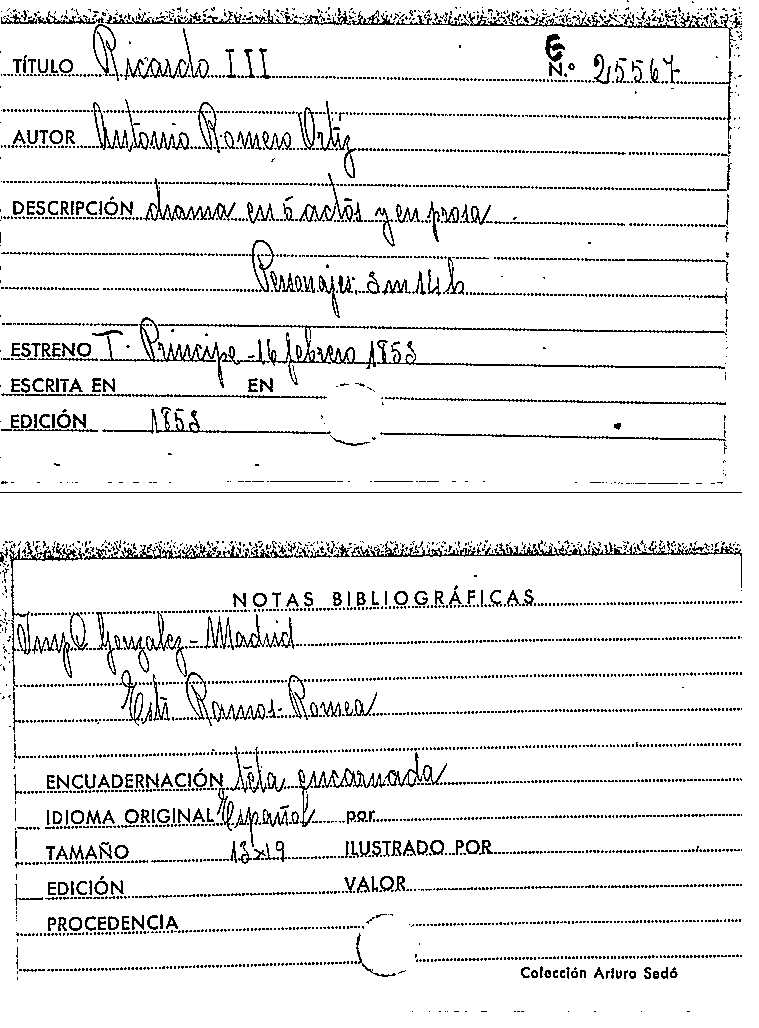 TÍTULO Ricardo III G N.º 25567
AUTOR Antonio Romero Ortiz
DESCRIPCIÓN drama en 5 actos y en prosa
Personajes: 3 m 14 h
ESTRENO T. Principe - 16 febrero 1853
ESCRITA EN EN
EDICIÓN 1853
NOTAS BIBLIOGRÁFICAS
Imp C Gonzalez - Madrid
Est. Ramos - Romea
ENCUADERNACIÓN tela encarnada
IDIOMA ORIGINAL Español por
TAMAÑO 13x19 ILUSTRADO POR
EDICIÓN VALOR
PROCEDENCIA
Colección Arturo Sedó